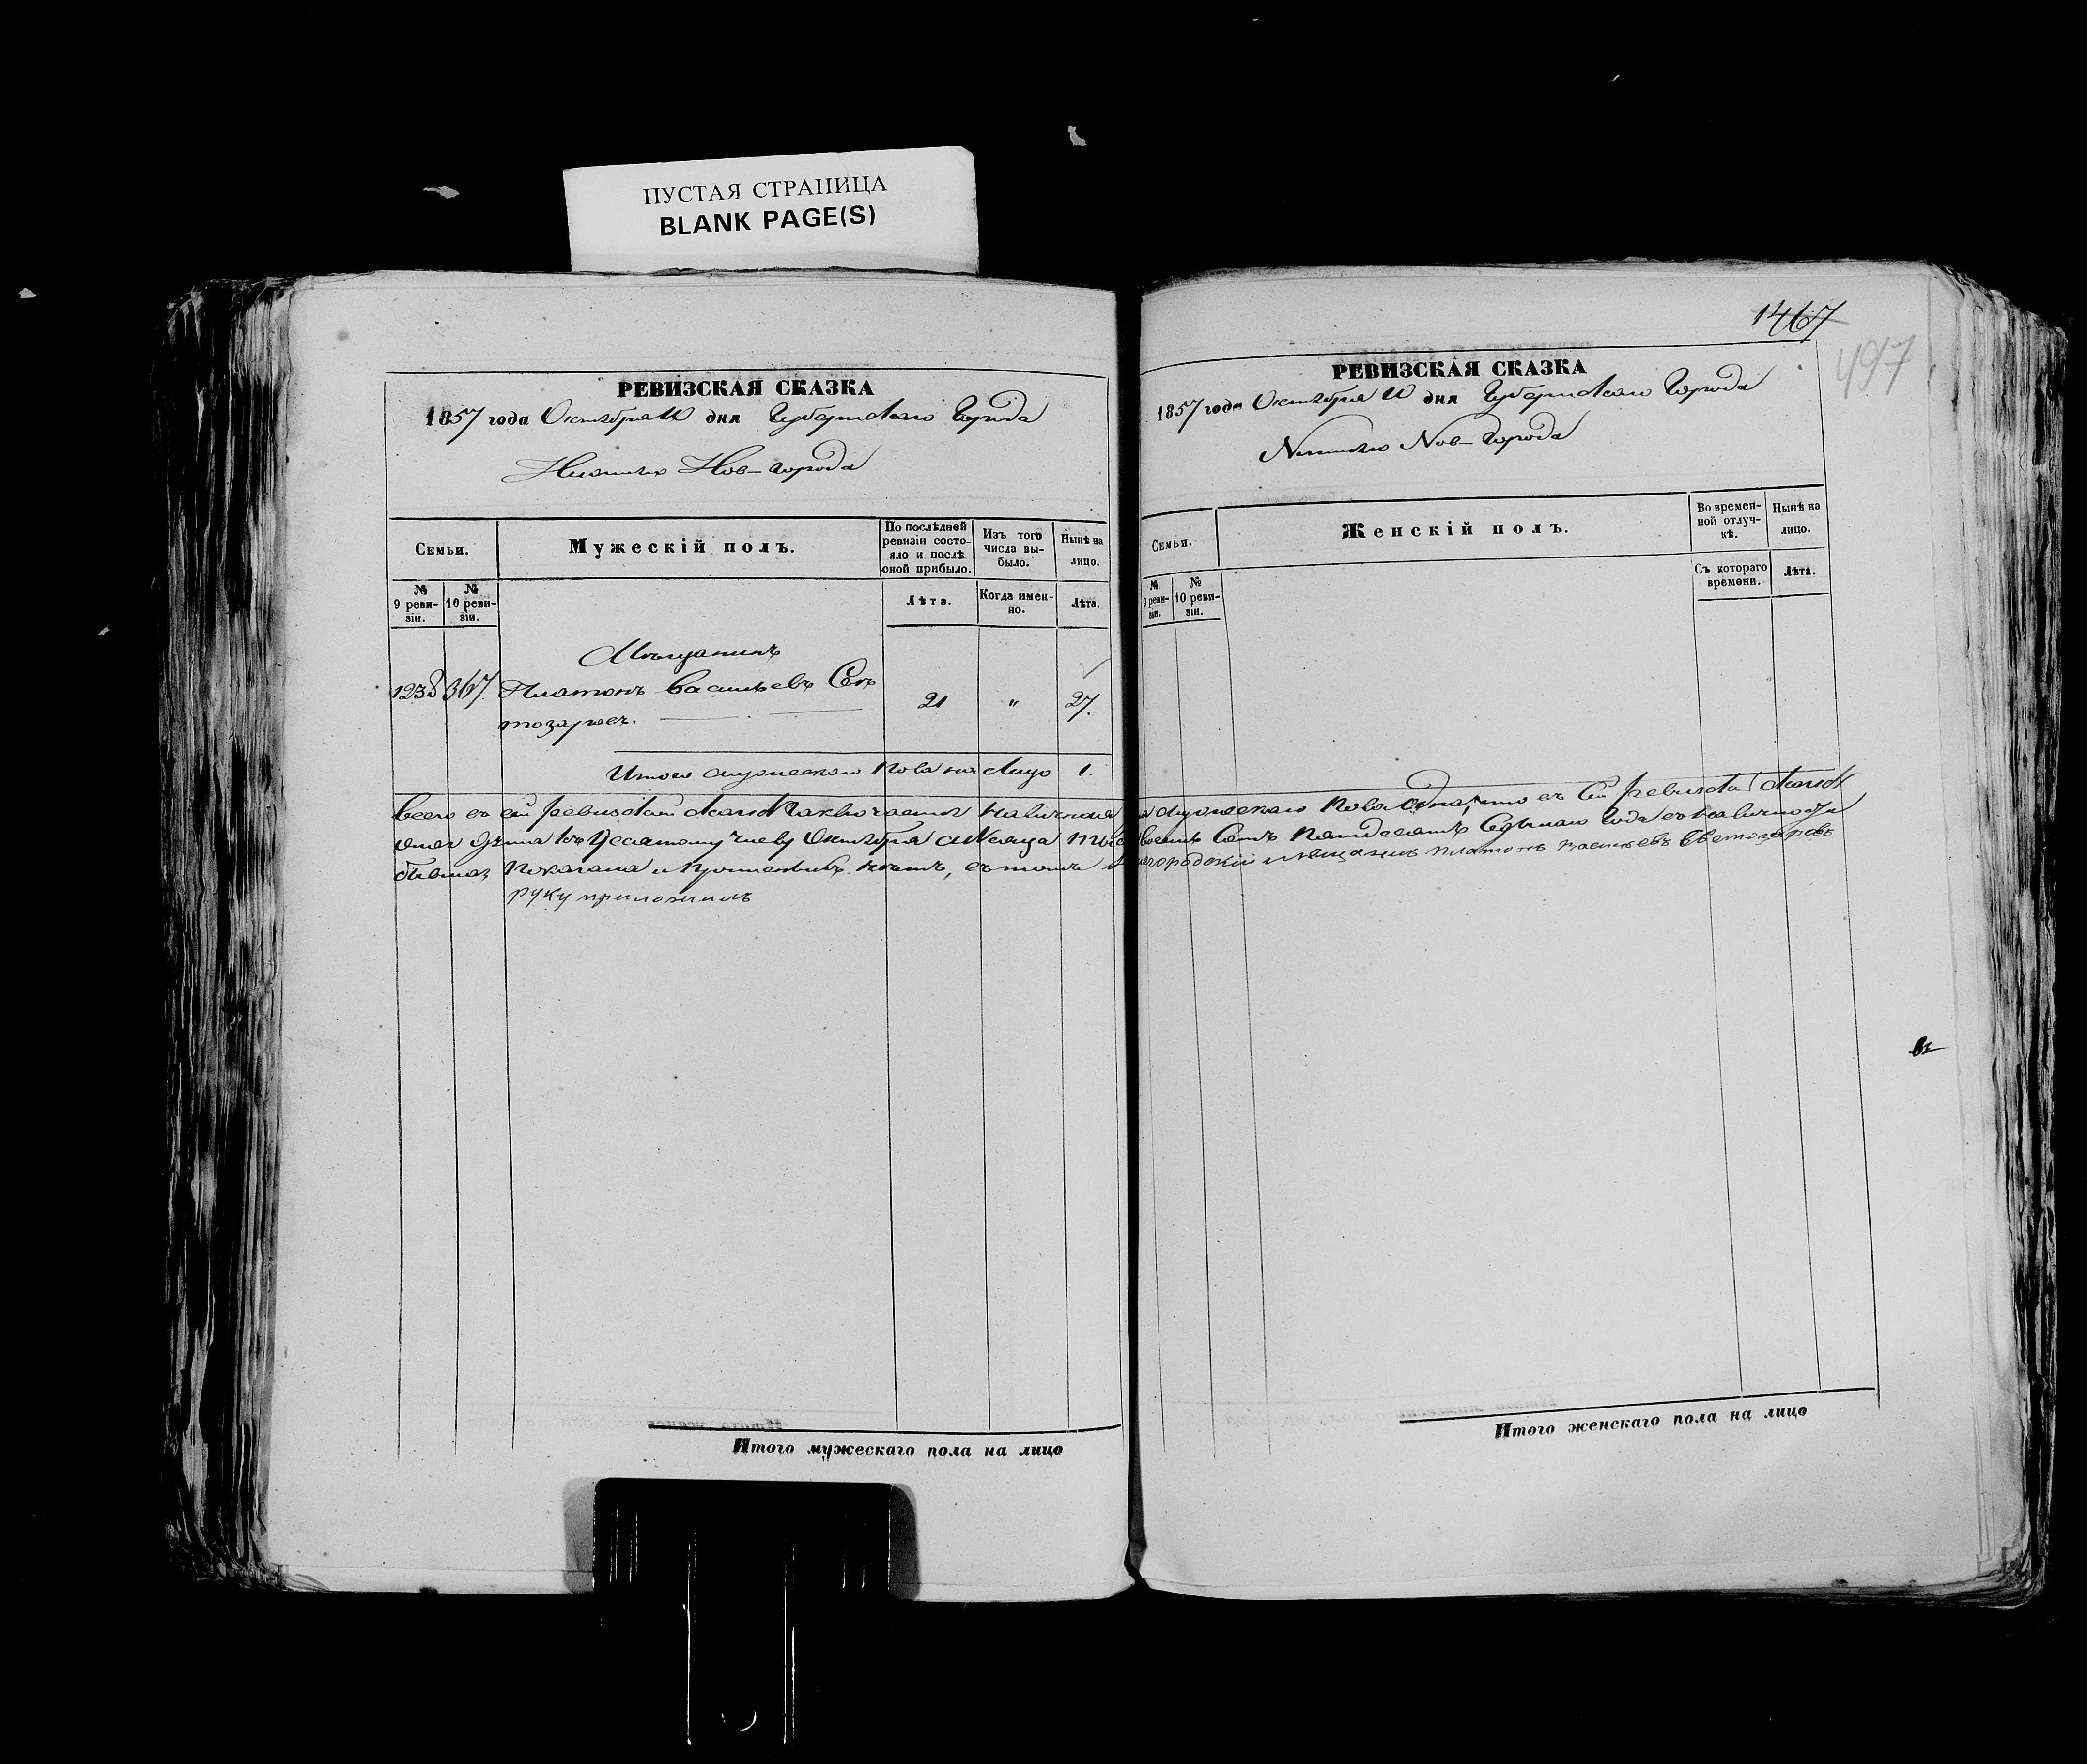 ПУСТАЯ СТРАНИЦА
BLANK PAGE(S)
РЕВИЗСКАЯ СКАЗКА
1857 года Октября 10 дня Губернскаго города
Нижняго Нов-города
Семьи.
Мужескій полъ.
По послѣдней ревизіи состояло и послѣ оной прибыло.
Изъ того числа выбыло.
Нынѣ на лицо.
№ 9 ревизіи.
№ 10 ревизіи.
Лѣта.
Когда именно.
Лѣта.
Мѣщанинъ
1238 367. Платонъ Васильевъ Свѣ 21 " 27.
тозаровъ.
Итого мужескаго пола на лицо 1.
Всего въ сей ревизской сказкѣ заключается наличная
къ десятому числу Октября мѣсяца
показана и прописныхъ нѣтъ, въ томъ
руку приложилъ
Итого мужескаго пола на лицо
1467
497
РЕВИЗСКАЯ СКАЗКА
1857 года Октября 10 дня Губернскаго города
Нижняго Нов-города
Семьи.
Женскій полъ.
Во временной отлучкѣ.
Нынѣ на лицо.
№ 9 ревизіи.
№ 10 ревизіи.
Съ котораго времени.
Лѣта.
мужескаго пола одна, что въ сей ревизской сказкѣ
восемь сотъ пятьдесятъ седьмаго года въ наличности
мещанинъ Платонъ Васильевъ Светозаровъ
Итого женскаго пола на лицо